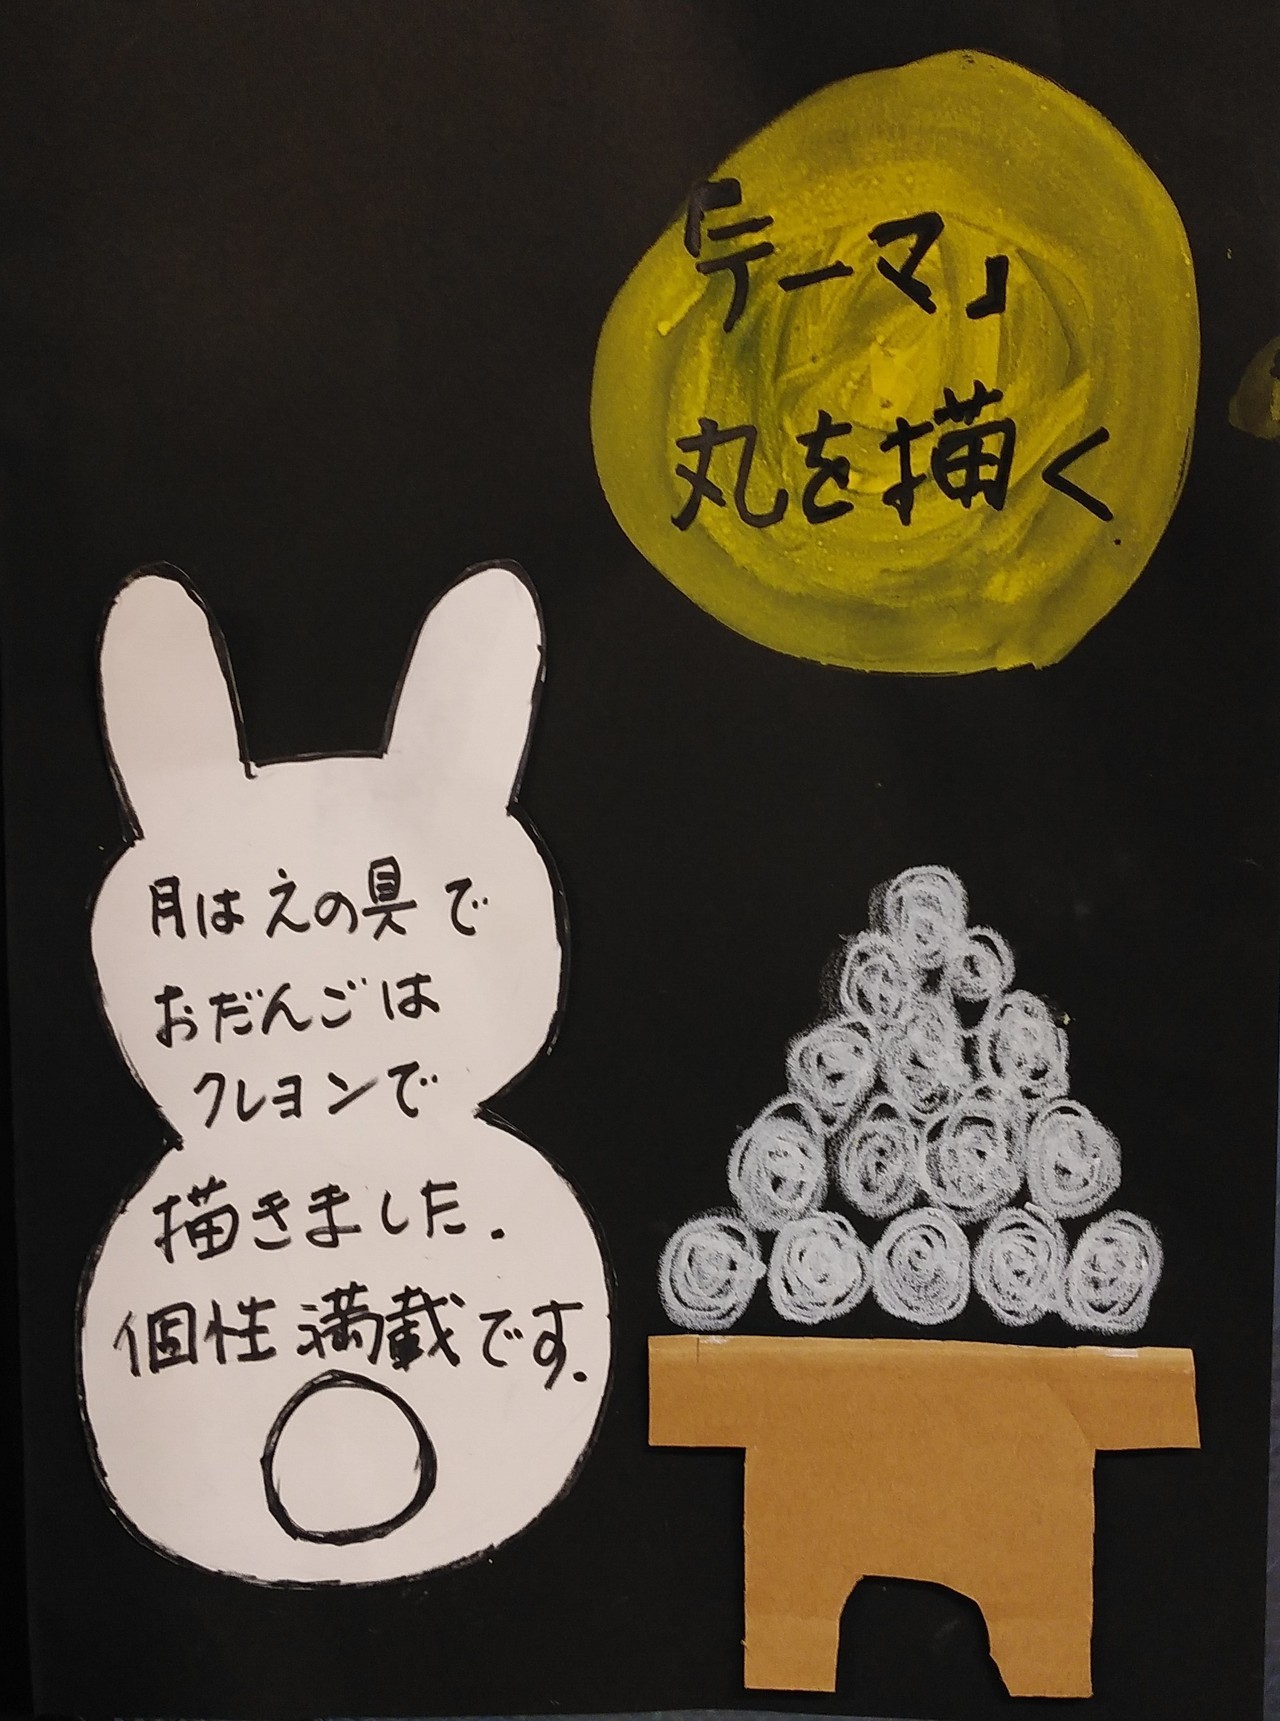 「テーマ」
丸を描く
月はえの具で
おだんごは
クレヨンで
描きました.
個性満載です.